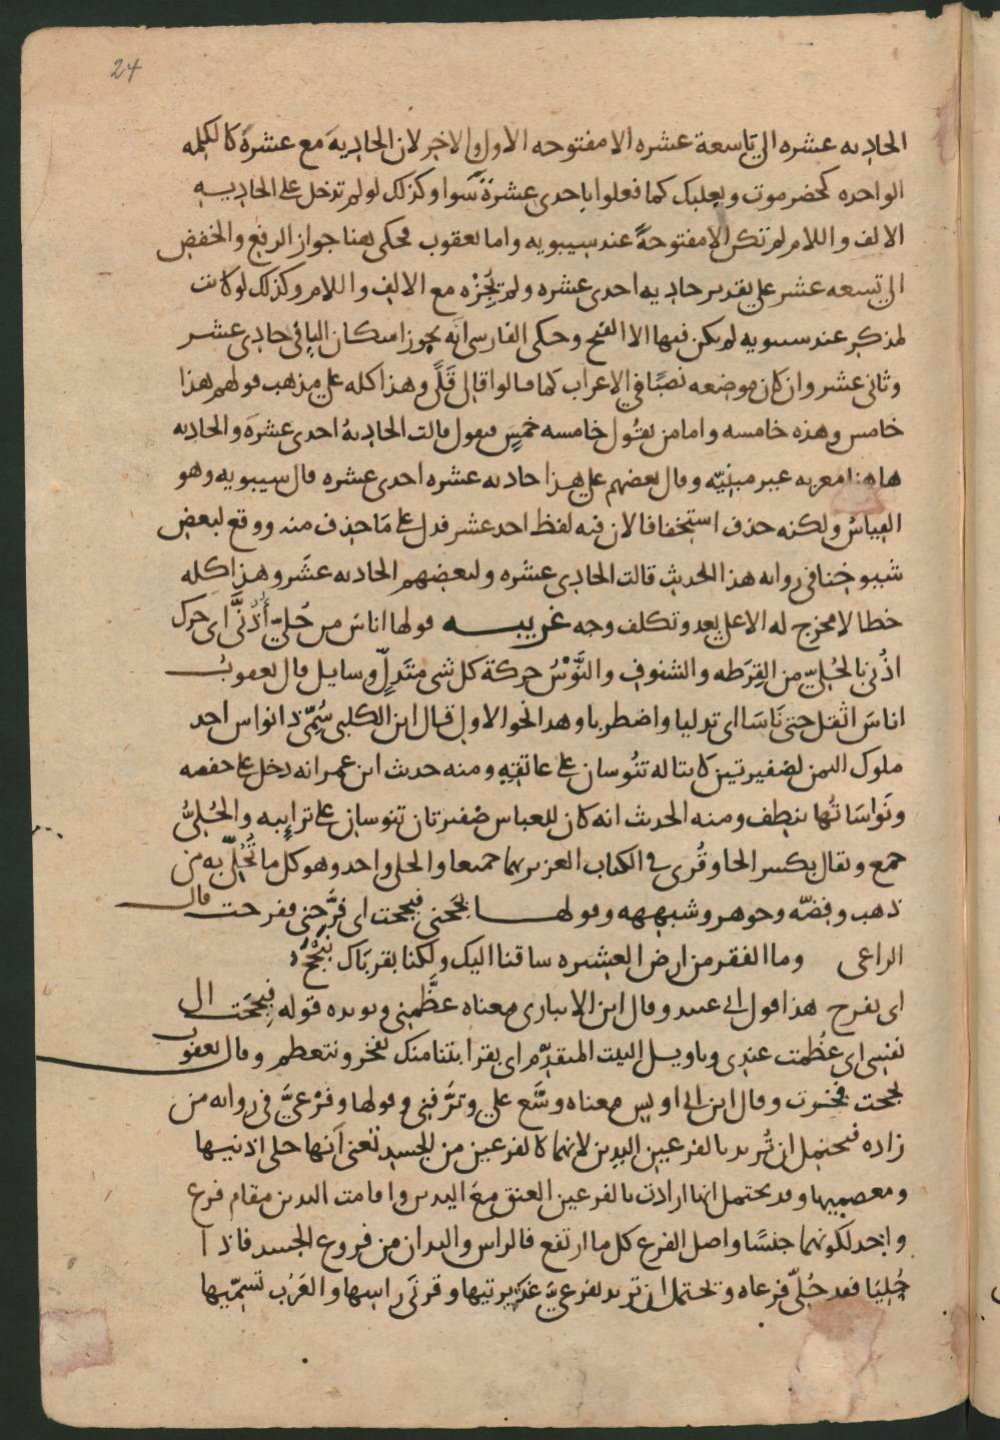 24
الحاديه عشره الى تاسعة عشره الا مفتوحه الاول والاخر لان الحاديةَ مع عشرةَ كالكلمه
الواحده كحضرموت وبعلبك كما فعلوا باحدى عشرةَ سَوا وكذلك لو لم تدخل على الحاديه
الالف واللام لم تكن الا مفتوحةً عند سيبويه واما يعقوب فحكى هنا جواز الرفع والخفض
الى تسعه عشر على تقدير حاديه احدى عشره ولم يُجِزْه مع الالف واللام وكذلك لو كانت
لمذكر عند سيبويه لم يكن فيها الا الفتح وحكى الفارسى انه يجوز اسكان اليا فى حادى عشر
وثانى عشر وان كان موضعه نصبًا فى الاعراب كما قالوا قالى قَلَا وهذا كله على مذهب قولهم هذا
خامس وهذه خامسه واما من يقول خامسه خمسٍ فيقول قالت الحاديةُ احدى عشرَة والحاديه
هاهنا معربه غير مبنيّه وقال بعضهم على هذا حاديه عشره احدى عشره قال سيبويه وهو
القياسُ ولكنه حذف استخفافا لان فيه لفظ احد عشر فدل على مَا حذف منه ووقع لبعض
شيوخنا فى روايه هذا الحديث قالت الحادى عشره ولبعضهم الحاديه عشَر وهذا كله
خطا لا مخرج له الا على بعد وتكلف وجه غريبه قولها اناسَ من حُليّ أُذُنَىَّ اى حرك
اذُنى بالحُليّ من القِرَطه والشنوف والنَّوْسُ حركة كل شى متَدلٍّ وسايل قال يعقوبُ
اناسَ اثقل حتى نَاسَا اى تدليا واضطربا وهذا نحو الاول قال ابن الكلبى سُمّى ذا نواس احد
ملوك اليمن لضفيرتين كانتا له تنُوسان على عاتقهِ ومنه حديث ابن عمر انه دخل على حفصه
ونَواسَاتُها تنطف ومنه الحديث انه كان للعباس ضفيرتان تنوسان على ترايبه والحُليُّ
جمع ويقال بكسر الحا وقُرى فى الكتاب العزيز بهما جميعا والحلى واحد وهو كل ما تُحُلّى به من
ذهب وفضّه وجوهر وشبهه وقولها بجّحنى فبجحت اى فرَّحنى ففرحت قال
الراعى وما الفقر من ارض العشيره ساقنا اليك ولكنا بقرباك نَبْجَحُ
اى نفرح هذا قول ابى عبيد وقال ابن الانبارى معناه عظَّمنى ويويده قوله فبجحَت الى
نفسى اى عظُمت عندى وتاويل البيت المتقدّم اى بقرابتنا منك نفخر ونتعظم وقال يعقوب
بجحت فخرت وقال ابن ابى اويس معناه وسَّع على وترَّفنى وقولها وفرْعىَّ فى روايه من
زاده فيحتمل ان تُريد بالفرعين اليدين لانهما كالفرعين من الجسد تعنى اَنها حلى اذنيها
ومعصميها وقد يحتمل انها ارادت بالفرعين العنق معَ اليدين واقامت اليدين مقام فرع
واحد لكونهما جنسًا واصل الفرع كل ما ارتفع فالراس واليدان من فروع الجسد فاذا
حُلِيَا فقد حُلّى فرعاه وتحتمل ان تريد بفرعىَّ غديرتيها وقرنَى راسها والعَرَب تسمّيها